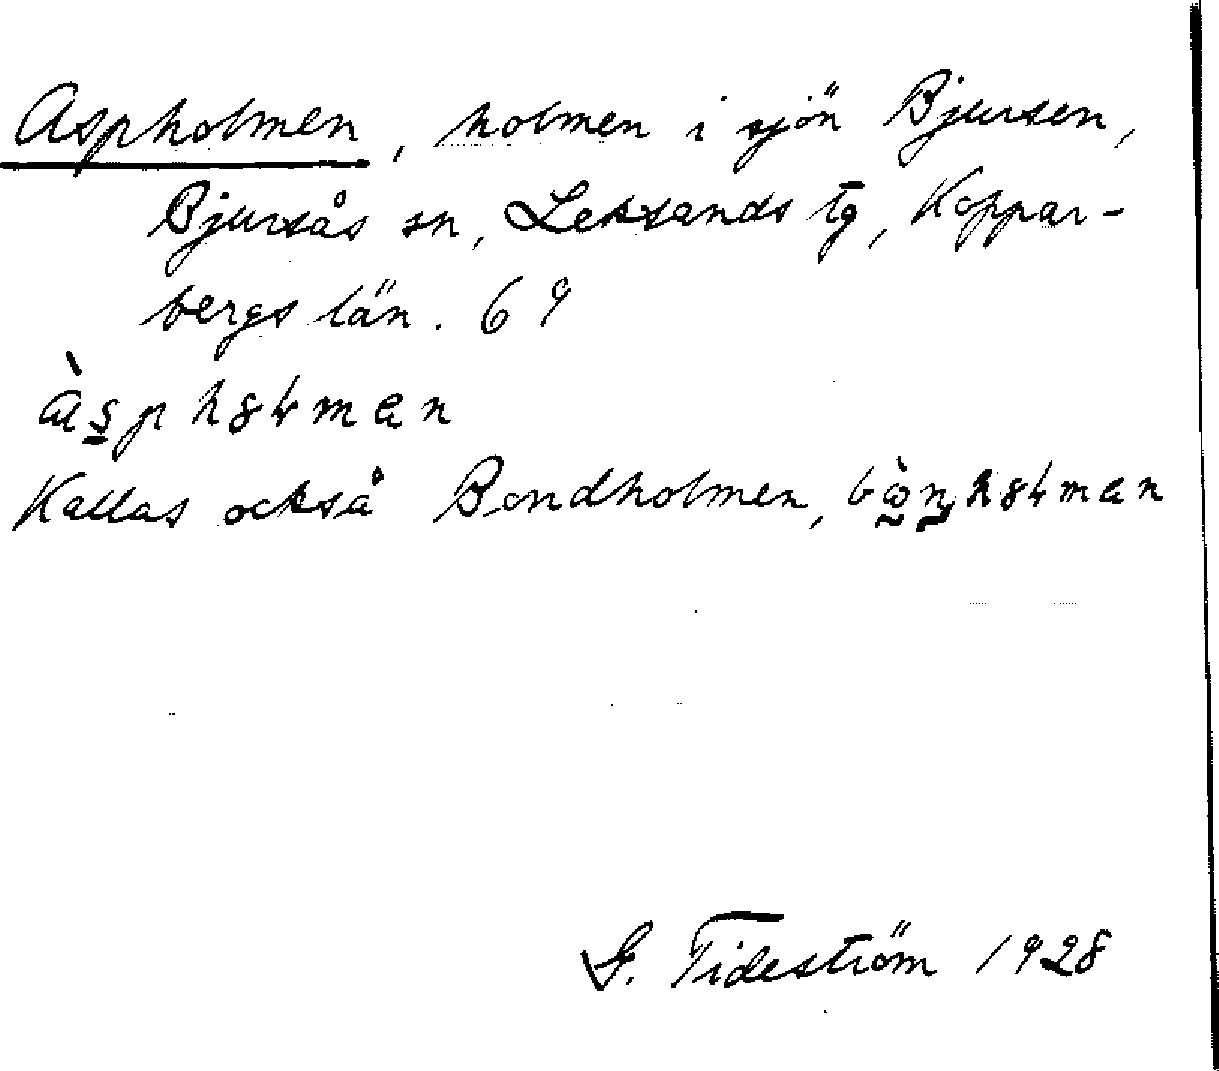 Aspholmen, holmen i sjön Bjursen,
Bjursås sn, Leksands tg, Koppar-
bergs län. 69
Kallas också Bondholmen,
G. Tideström 1928